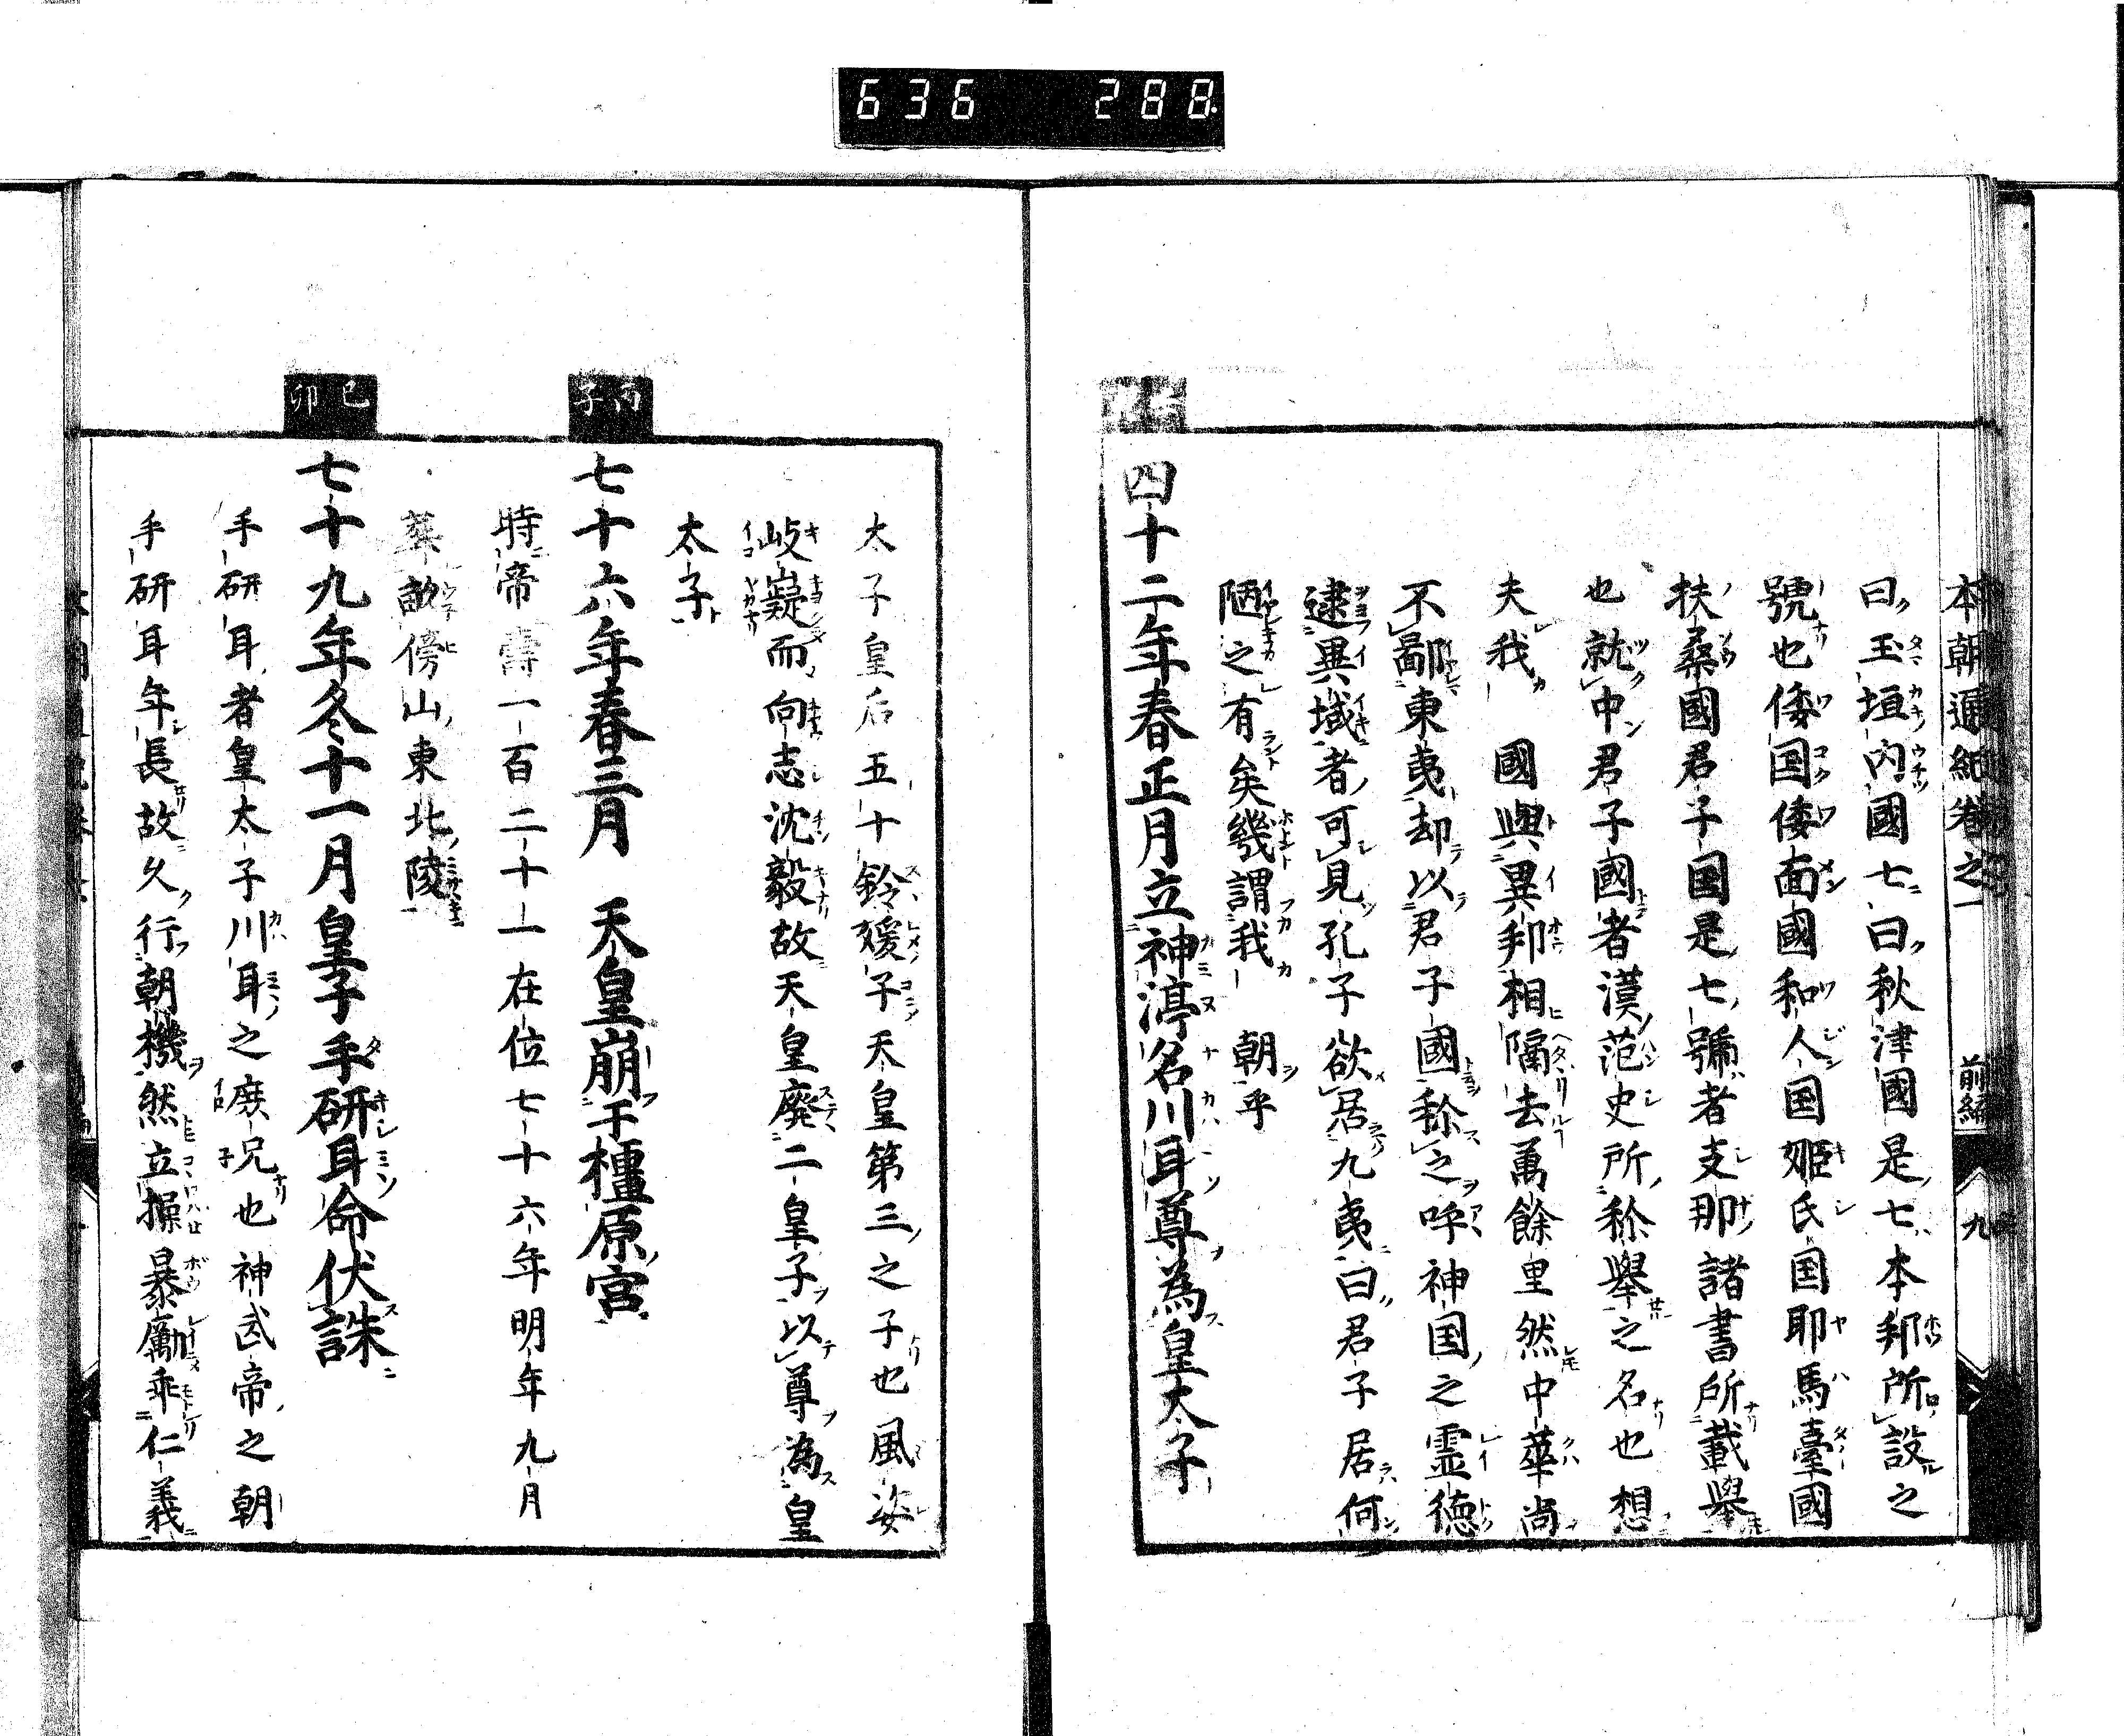 636 288
本朝通紀卷之一 前編 九
曰玉垣内國七曰秋津國是七本邦所設之
號也倭国倭面國和人国姬氏国耶馬臺國
扶桑國君子国是七號者支那諸書所載舉
也就中君子國者漢范史所称舉之名也想
夫我 國與異邦相隔去萬餘里然中華尚
不鄙東夷却以君子國称之呼神国之霊徳
逮異域者可見孔子欲居九夷曰君子居何
陋之有矣幾謂我 朝乎
四十二年春正月立神渟名川耳尊為皇太子
太子皇后五十鈴媛子天皇第三之子也風姿
岐嶷而向志沈毅故天皇廢二皇子以尊為皇
太子
丙子
七十六年春三月 天皇崩于橿原宮
時帝壽一百二十一在位七十六年明年九月
葬畝傍山東北陵
己卯
七十九年冬十一月皇子手研耳命伏誅
手研耳者皇太子川耳之庶兄也神武帝之朝
手研耳年長故久行朝機然立操暴厲乖仁義